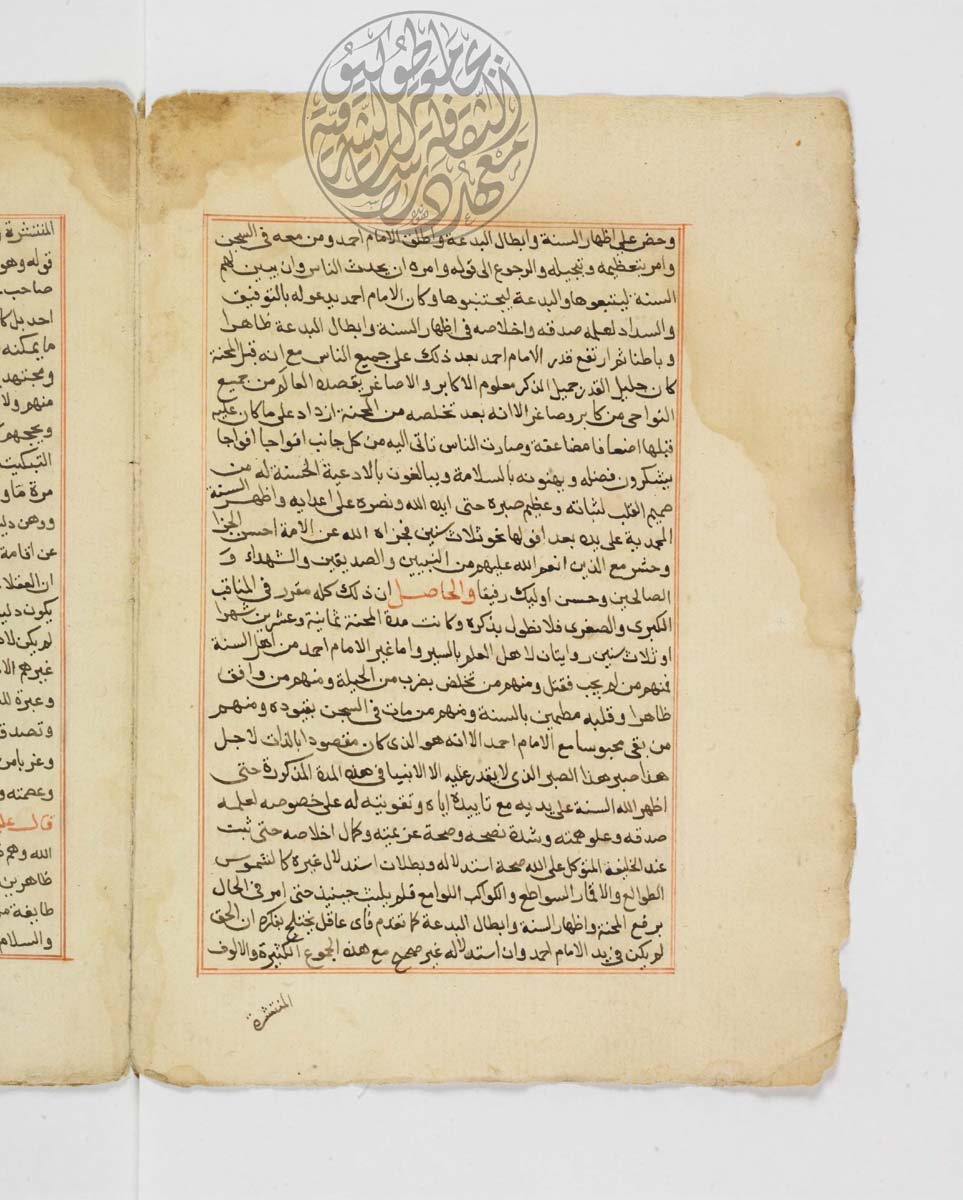 وحض على اظهار السنة وابطال البدعة واطلق الامام احمد ومن معه فى السجن
وامر بتعظيمه وتبجيله والرجوع الى قوله وامره ان يحدث الناس وان يبين لهم
السنة ليتبعوها والبدعة ليجتنبوها وكان الامام احمد يدعو له بالتوفيق
والسداد لعلمه صدقه واخلاصه فى اظهار السنة وابطال البدعة ظاهرا
وباطنا ثم ارتفع قدر الامام احمد بعد ذلك على جميع الناس مع انه قبل المحنة
كان جليل القدر جميل الذكر معلوم الاكابر والاصاغر يقصده العالم من جميع
النواحى من كابر وصاغر الا انه بعد تخلصه من المحنة ازداد على ما كان عليه
قبلها اضعافا مضاعفة وصارت الناس تاتى اليه من كل جانب افواجا افواجا
يشكرون فضله ويهنونه بالسلامة ويبالغون بالادعية الحسنة له من
صميم القلب لثباته وعظيم صبره حتى ايده الله ونصره على اعدايه واظهر السنة
المحمدية على يده بعد افولها نحو ثلاث سنين فجزاه الله عن الامة احسن الجزا
وحشر مع الذين انعم الله عليهم من النبيين والصديقين والشهداء و
الصالحين وحسن اوليك رفيقا والحاصل ان ذلك كله مقرر فى المناقب
الكبرى والصغرى فلا نطول بذكره وكانت مدة المحنة ثمانية وعشرين شهرا
او ثلاث سنين روايتان لاهل العلم بالسير واما غير الامام احمد من اهل السنة
فمنهم من لم يجب فقتل ومنهم من تخلص بضرب من الحيلة ومنهم من وافق
ظاهرا وقلبه مطمين بالسنة ومنهم من مات فى السجن بقيوده ومنهم
من بقى محبوسا مع الامام احمد الا انه هو الذى كان مقصودا بالذات لاجل
هذا صبر هذا الصبر الذى لا يقدر عليه الا الانبيا فى هذه المدة المذكورة حتى
اظهر الله السنة على يديه مع تاييده اياه وتقويته له على خصومه لعلمه
صدقه وعلو همته وشدة نصحه وصحة عزيمته وكمال اخلاصه حتى ثبت
عند الخليفة المتوكل على الله صحة استدلاله وبطلان استدلال غيره كالشموس
الطوالع والاقمار السواطع والكواكب اللوامع فلم يلبث حينيذ حتى امر فى الحال
برفع المحنة واظهار السنة وابطال البدعة كما تقدم فاى عاقل يختلج بفكره ان الحق
لم يكن فى يد الامام احمد وان استدلاله غير صحيح مع هذه الجموع الكثيرة والالوف
المنتشرة
المنتشرة
قوله وهو
صاحب
احد بل كا
ما يمكنه
ويجتهد
منهم ولا
ويحجهم
التبكيت
مرة
ووهن دليـ
عن اقامة
ان العقلا
يكون دليـ
لم يكن لا
غيرهم الا
وعبرة للـ
وتصدق
وعزبا من
وعصمته و
قال
الله وهم
ظاهرين
طايفة من
والسلام